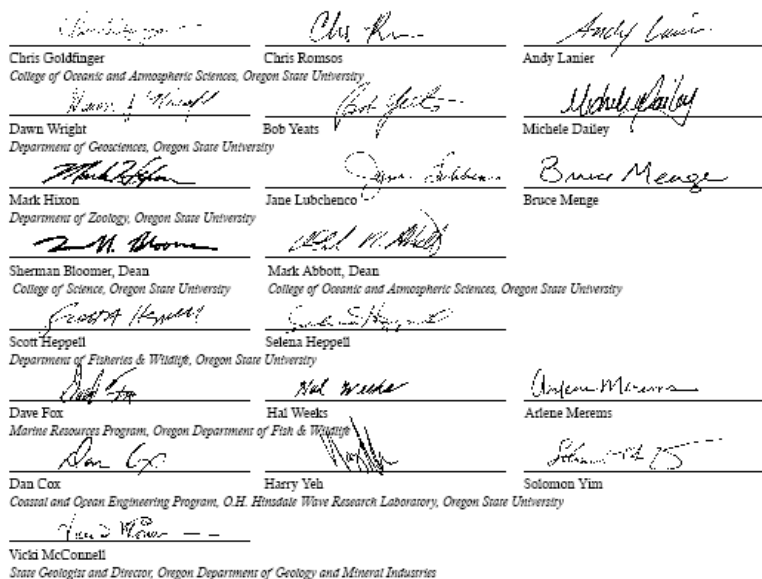 Chris Romsos Andy Lanier
Chris Goldfinger Chris Romsos Andy Lanier
College of Oceanic and Atmospheric Sciences, Oregon State University
Dawn J Wright Bob Yeats Michele Dailey
Dawn Wright Bob Yeats Michele Dailey
Department of Geosciences, Oregon State University
Bruce Menge
Mark Hixon Jane Lubchenco Bruce Menge
Department of Zoology, Oregon State University
Sherman Bloomer, Dean Mark Abbott, Dean
College of Science, Oregon State University College of Oceanic and Atmospheric Sciences, Oregon State University
Scott Heppell Selena Heppell
Scott Heppell Selena Heppell
Department of Fisheries & Wildlife, Oregon State University
Hal Weeks Arlene Merems
Dave Fox Hal Weeks Arlene Merems
Marine Resources Program, Oregon Department of Fish & Wildlife
Dan Cox
Dan Cox Harry Yeh Solomon Yim
Coastal and Ocean Engineering Program, O.H. Hinsdale Wave Research Laboratory, Oregon State University
Vicki McConnell
State Geologist and Director, Oregon Department of Geology and Mineral Industries